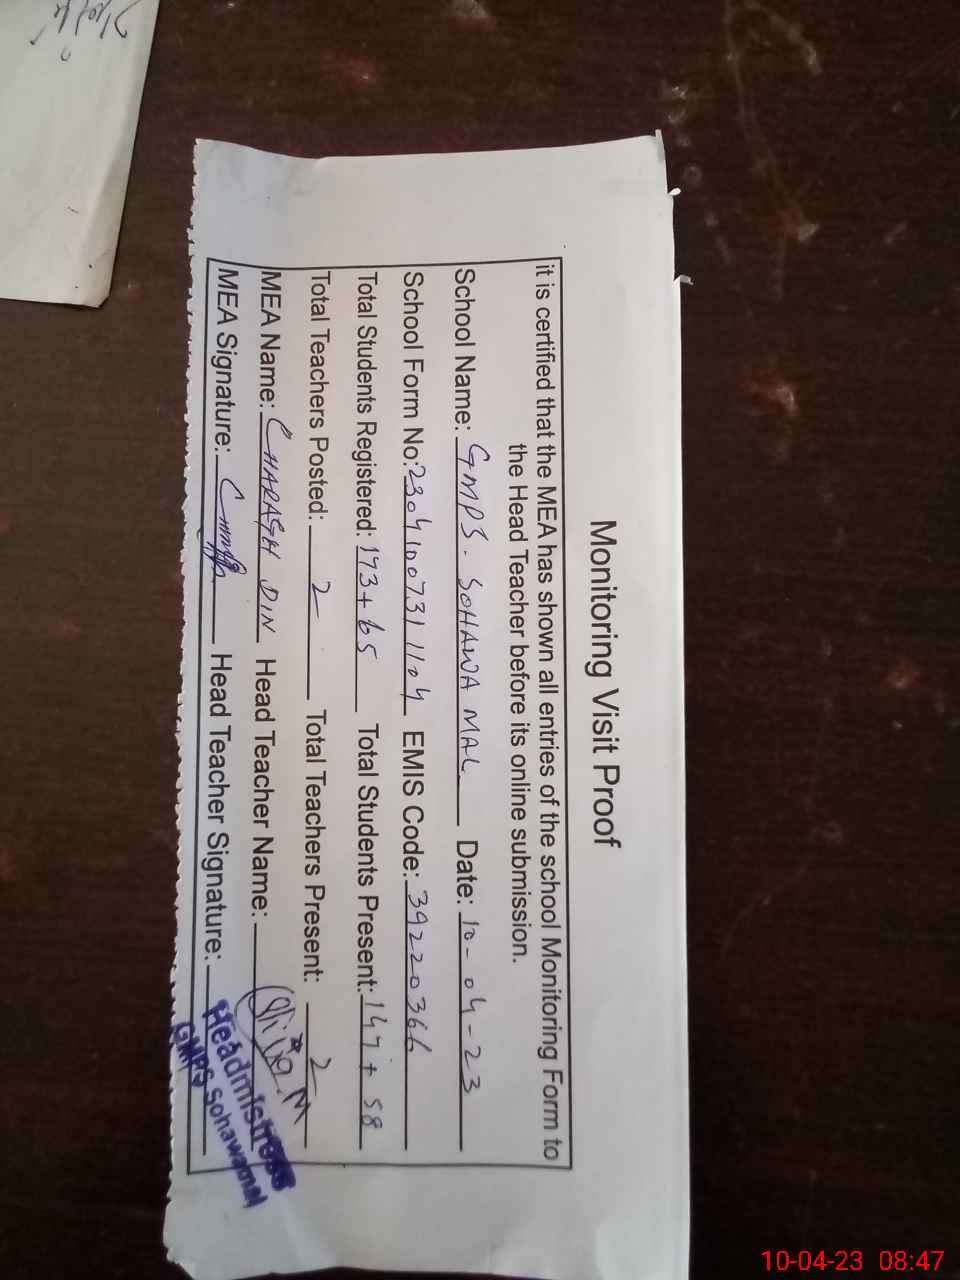 Monitoring Visit Proof
it is certified that the MEA has shown all entries of the school Monitoring Form to
the Head Teacher before its online submission.
School Name: GMPS. SOHAWA MAL Date: 10-04-23
School Form No: 2304100731104 EMIS Code: 39220366
Total Students Registered: 173+65 Total Students Present: 147+58
Total Teachers Posted: 2 Total Teachers Present: 2
MEA Name: CHARAGH DIN Head Teacher Name:
MEA Signature: Head Teacher Signature:
Headmistress
GMPS Sohawamal
10-04-23 08:47